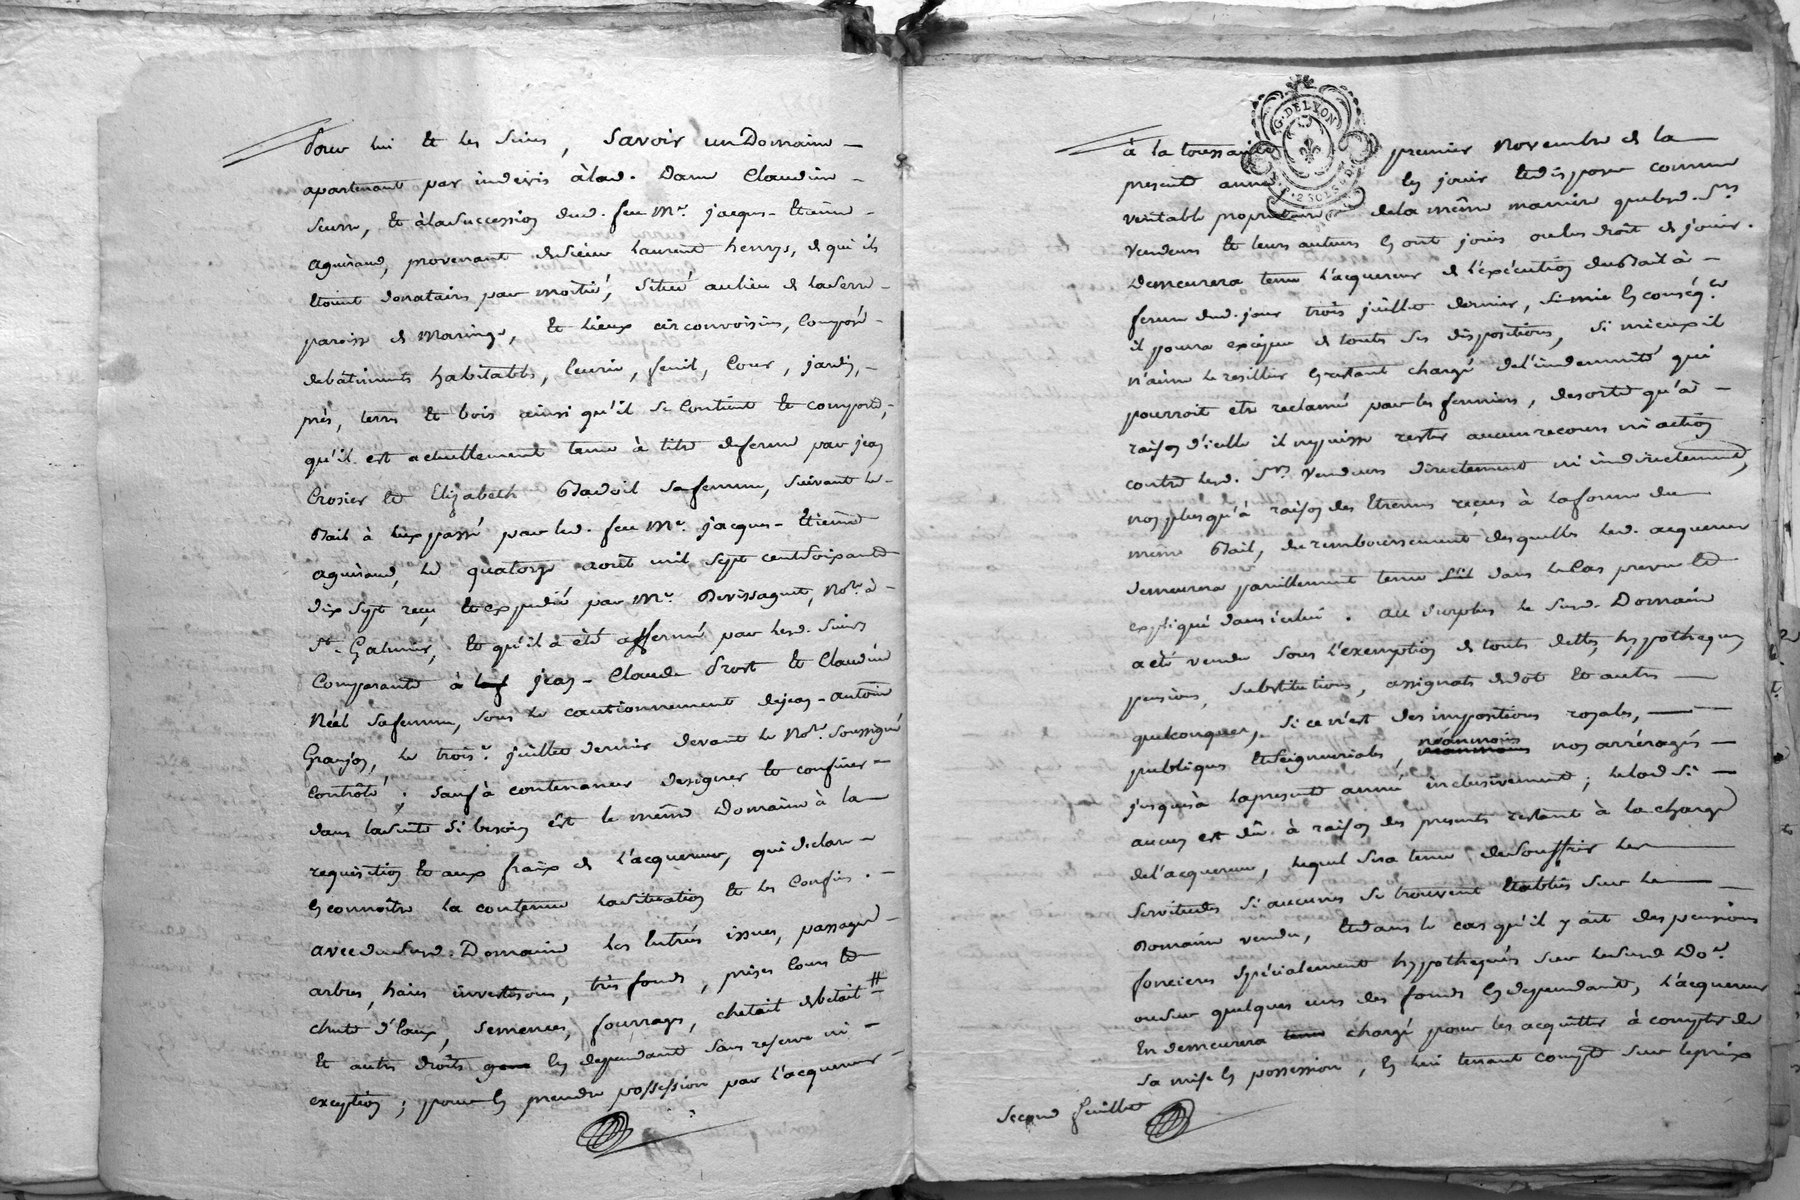 Pour lui et les siens, Savoir un Domaine
apartenant par indivis à lad. Dame Claudine
Seurre, et à la Succession dud. feu Mr. jacques-Etienne
aguiraud, provenant de Sieur laurent henrys, de qui ils
étoient donataires par moitié, Situé au lieu de laserre
paroisse de Maringe, et lieux circonvoisins, Composé
de bâtiments habitables, Ecurie, fenil, Cour, jardin,
près, terres et bois ainsi qu'il Se Contient et comporte,
qu'il est actuellement tenu à titre de ferme par jean
Crosier et Elizabeth Badoil Safemme, Suivant le
Bail à eux passé par led. feu Mr. jacques-Etienne
aguiraud, le quatorze août mil sept cent Soixante
dix Sept reçu et expédié par Mr. Devissaguet, Nore. à
St. Galmier, et qu'il a été affermé par lesd. Sieurs
Comparants à jean-Claude Prost et Claudine
Néel Safemme, sous le cautionnement de jean-antoine
Granjon, le troise. juillet dernier devant le Nore. Soussigné
Contrôlé; Sauf à contenancer designer et confiner
dans la suite Si besoin est le même Domaine à la
requisition et aux fraix de l'acquereur, qui declare
en connoître la contenue la Situation et les Confins.
avec du Susd. Domaine les Entrées issues, passages
arbres, haies investisons, très fonds, prises Cours et
chute d'Eaux, Semences, fourrages, chetail de betail #
et autres droits en dependant Sans reserve ni
exception; pour en prendre possession par l'acquereur
à la toussaint premier Novembre de la
presente année en jouir et disposer comme
veritable propriétaire de la même maniere que lesd. Srs.
vendeurs et leurs auteurs en ont joui ou eu droit de jouir.
Demeurera tenu l'acquereur de l'exécution du Bail à
ferme dud. jour trois juillet dernier, de mie en conséq.ce
il pourra exciper de toutes Ses dispositions, Si mieux il
n'aime le resillier en restant chargé de l'indemnité qui
pourroit etre reclamé par les fermiers, desorte qu'à
raison d'icelle il ne puisse rester aucun recours ni action
contre lesd. Srs. Vendeurs directement ni indirectement,
non plus qu'à raison des Etrennes reçues à la forme du
même Bail, du remboursement desquelles led. acquereur
demeurera pareillement tenu dans le Cas prevu et
expliqué dans icelui. au Surplus le Susd. Domaine
a été vendu Sous l'exemption de toutes dettes, hypotheques
pensions, Substitutions, assignats de dot et autres
quelconques, Si ce n'est des impositions royales,
publiques et Seigneuriales, néanmoins non arréragés
jusques à la presente année inclusivement; le lod Si
aucun est dû à raison des presentes restant à la charge
de l'acquereur, lequel Sera tenu de Souffrir les
Servitudes Si aucunes Se trouvent établies Sur le
Domaine vendu, et dans le cas qu'il y ait des pensions
foncieres Spécialement hypothequées Sur le Susd. Do.e
ou sur quelques uns des fonds en dependants, l'acquereur
En demeurera chargé pour les acquitter à compter de
Sa mise en possession, en lui tenant compte Sur le prix
Second feuillet
G. DE LYON
2 SOLS